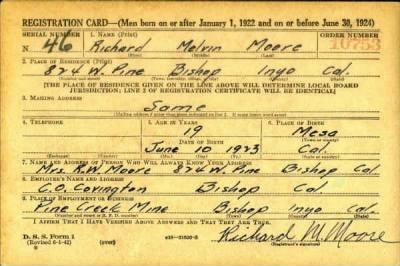 REGISTRATION CARD—(Men born on or after January 1, 1922 and on or before June 30, 1924)
SERIAL NUMBER 1. NAME (Print) ORDER NUMBER
N 46 Richard Melvin Moore 10753
(First) (Middle) (Last)
2. PLACE OF RESIDENCE (Print)
824 W. Pine Bishop Inyo Cal.
(Number and street) (Town, township, village, or city) (County) (State)
[THE PLACE OF RESIDENCE GIVEN ON THE LINE ABOVE WILL DETERMINE LOCAL BOARD
JURISDICTION; LINE 2 OF REGISTRATION CERTIFICATE WILL BE IDENTICAL]
3. MAILING ADDRESS
Same
[Mailing address if other than place indicated on line 2. If same insert word same]
4. TELEPHONE 5. AGE IN YEARS 6. PLACE OF BIRTH
19 Mesa
DATE OF BIRTH
June 10 1923 Cal.
(Mo.) (Day) (Yr.)
7. NAME AND ADDRESS OF PERSON WHO WILL ALWAYS KNOW YOUR ADDRESS
Mrs. R.W. Moore 824 W. Pine Bishop Cal
8. EMPLOYER'S NAME AND ADDRESS
C.O. Covington Bishop Cal
9. PLACE OF EMPLOYMENT OR BUSINESS
Pine Creek Mine Bishop Inyo Cal.
(Number and street or R. F. D. number) (Town) (County) (State)
I AFFIRM THAT I HAVE VERIFIED ABOVE ANSWERS AND THAT THEY ARE TRUE.
D. S. S. Form 1
(Revised 6-1-42) (over) Richard M. Moore
(Registrant's signature)